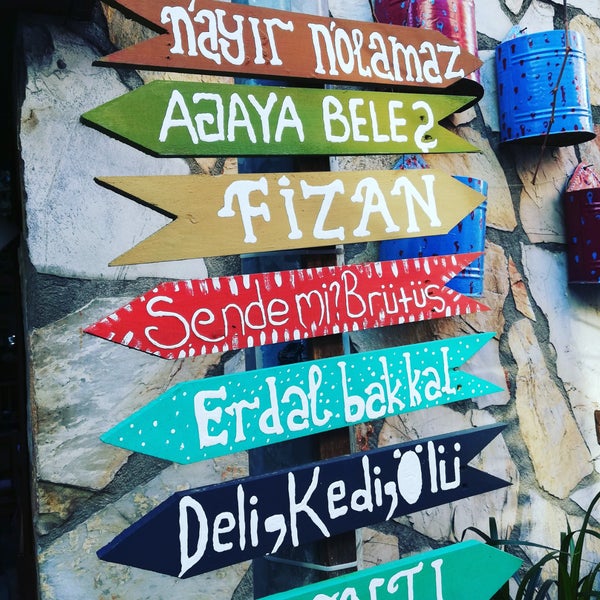 NAYIR NOLAMAZ
AGAYA BELEŞ
FİZAN
Sende mi? Brütüs
Erdal bakkal
Deli, Kedi, Ölü